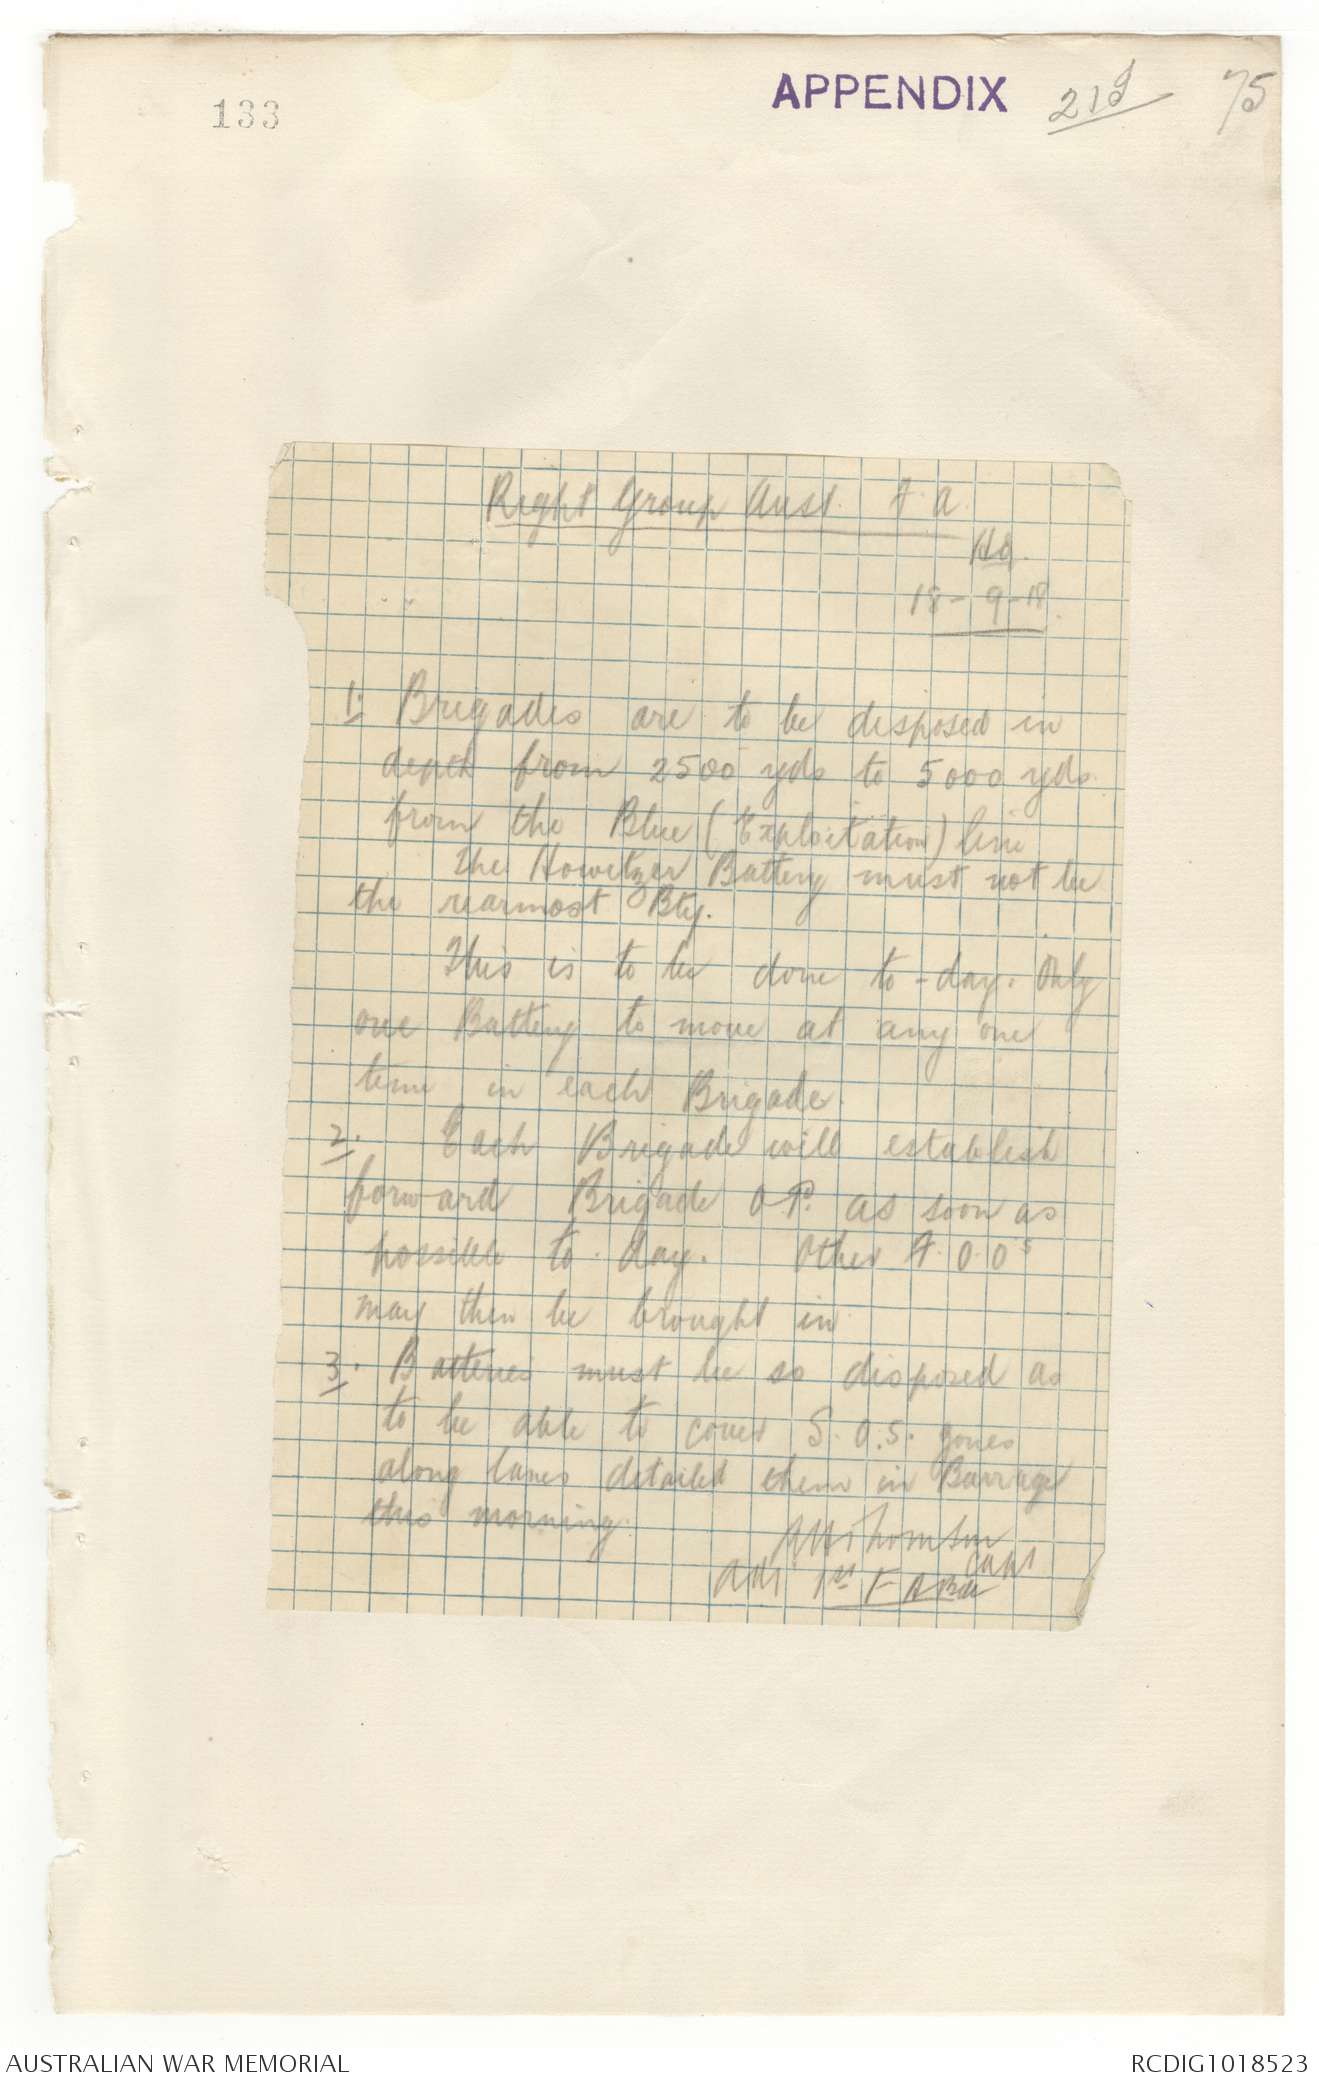 133
APPENDIX 219
75
Right Group Aust. F. A.
HQ.
18-9-18.
1. Brigades are to be disposed in
depth from 2500 yds to 5000 yds
from the Blue (Exploitation) line
The Howitzer Battery must not be
the rearmost Bty.
This is to be done to-day. Only
one Battery to move at any one
time in each Brigade.
2. Each Brigade will establish
forward Brigade O.P. as soon as
possible to-day. Other F.O.Os
may then be brought in.
3. Batteries must be so disposed as
to be able to cover S.O.S. zones
along lanes detailed them in Barrage
this morning.
Thomson
Capt
Adj 1st F A Bde
AUSTRALIAN WAR MEMORIAL
RCDIG1018523